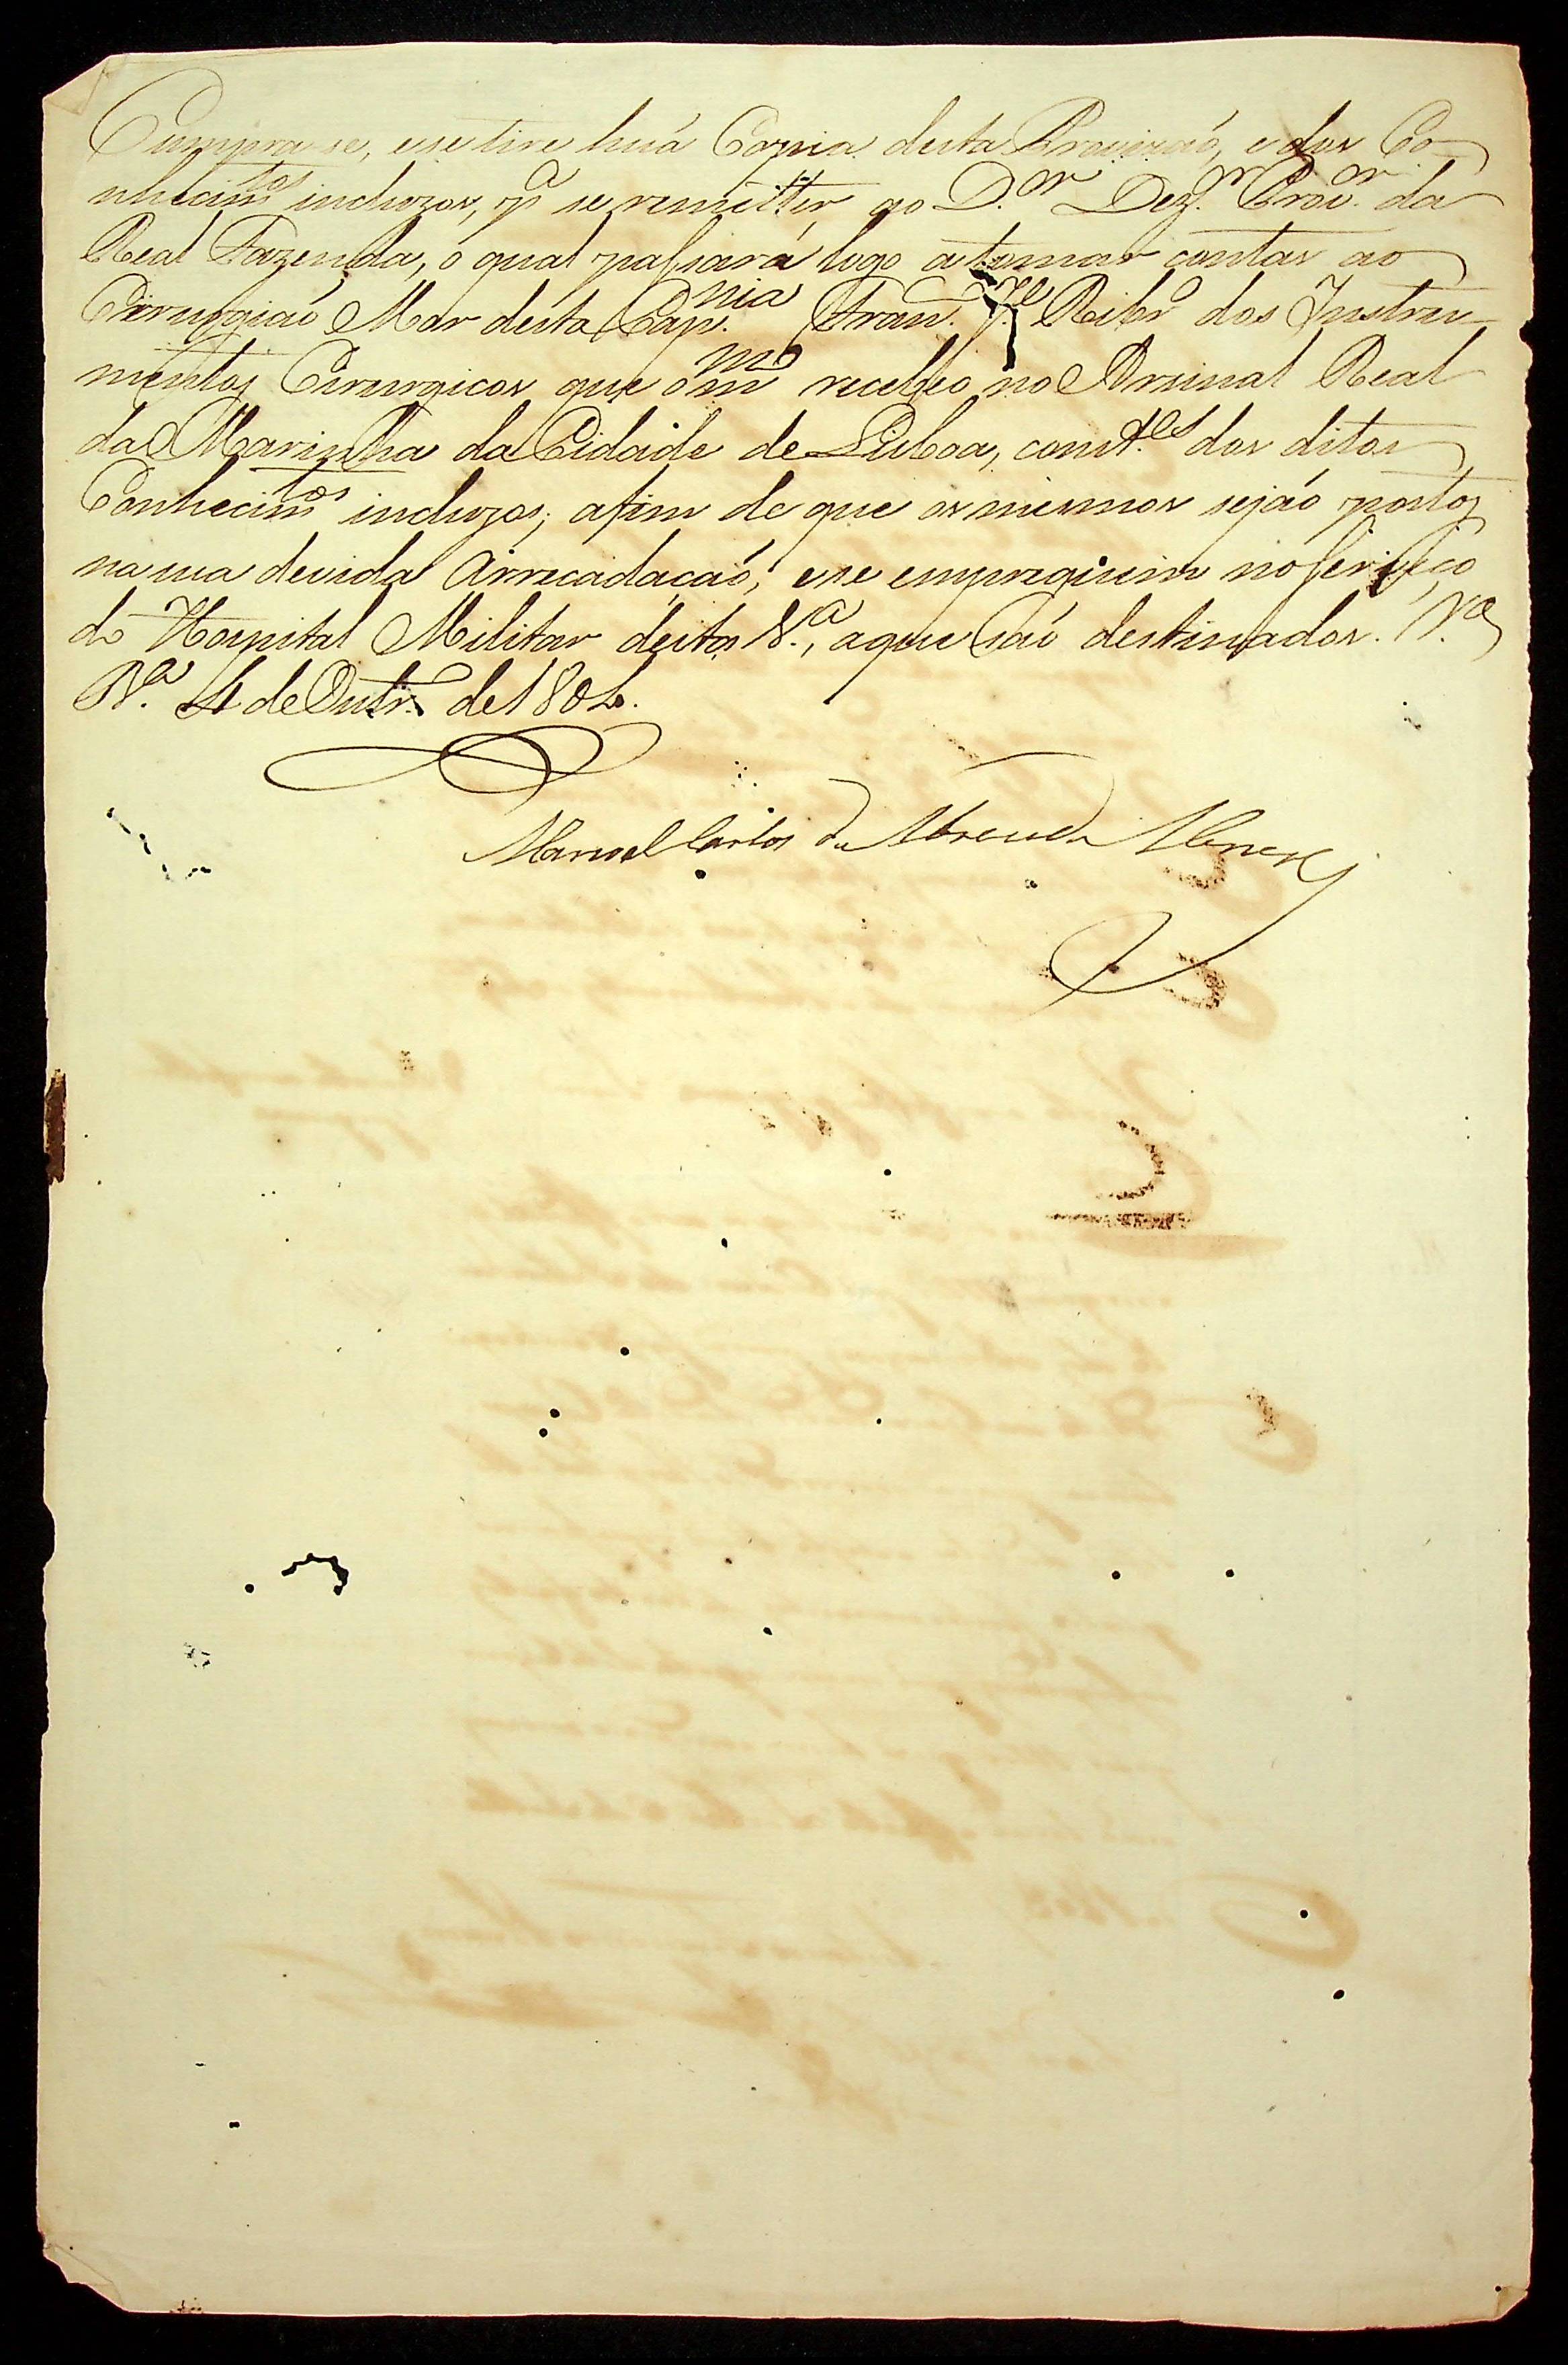 Cumpra se, e se tire huá Copia desta Provizaó, e dos Co-
nhecim.tos incluzos, p.a se remetter ao D.or Dez.or Prov.or da
Real Fazenda, o qual passará logo a tomar contas ao
Cirurgiaó Mor desta Cap.nia Fran.co J.e Ribr.o dos Instru-
mentos Cirurgicos que o m.mo recebeo no Arsenal Real
da Marinha da Cidade de Lisboa, const.es dos ditos
Conhecim.tos incluzos; afim de que os mesmos sejáo postos
na sua devida Arrecadaçaó, e se empreguem no serviço
do Hospital Militar desta V.a, a que saó destinados. V.a
B.a 4 de Outr.o de 1804.
Manoel Carlos de Abreu de Menezes